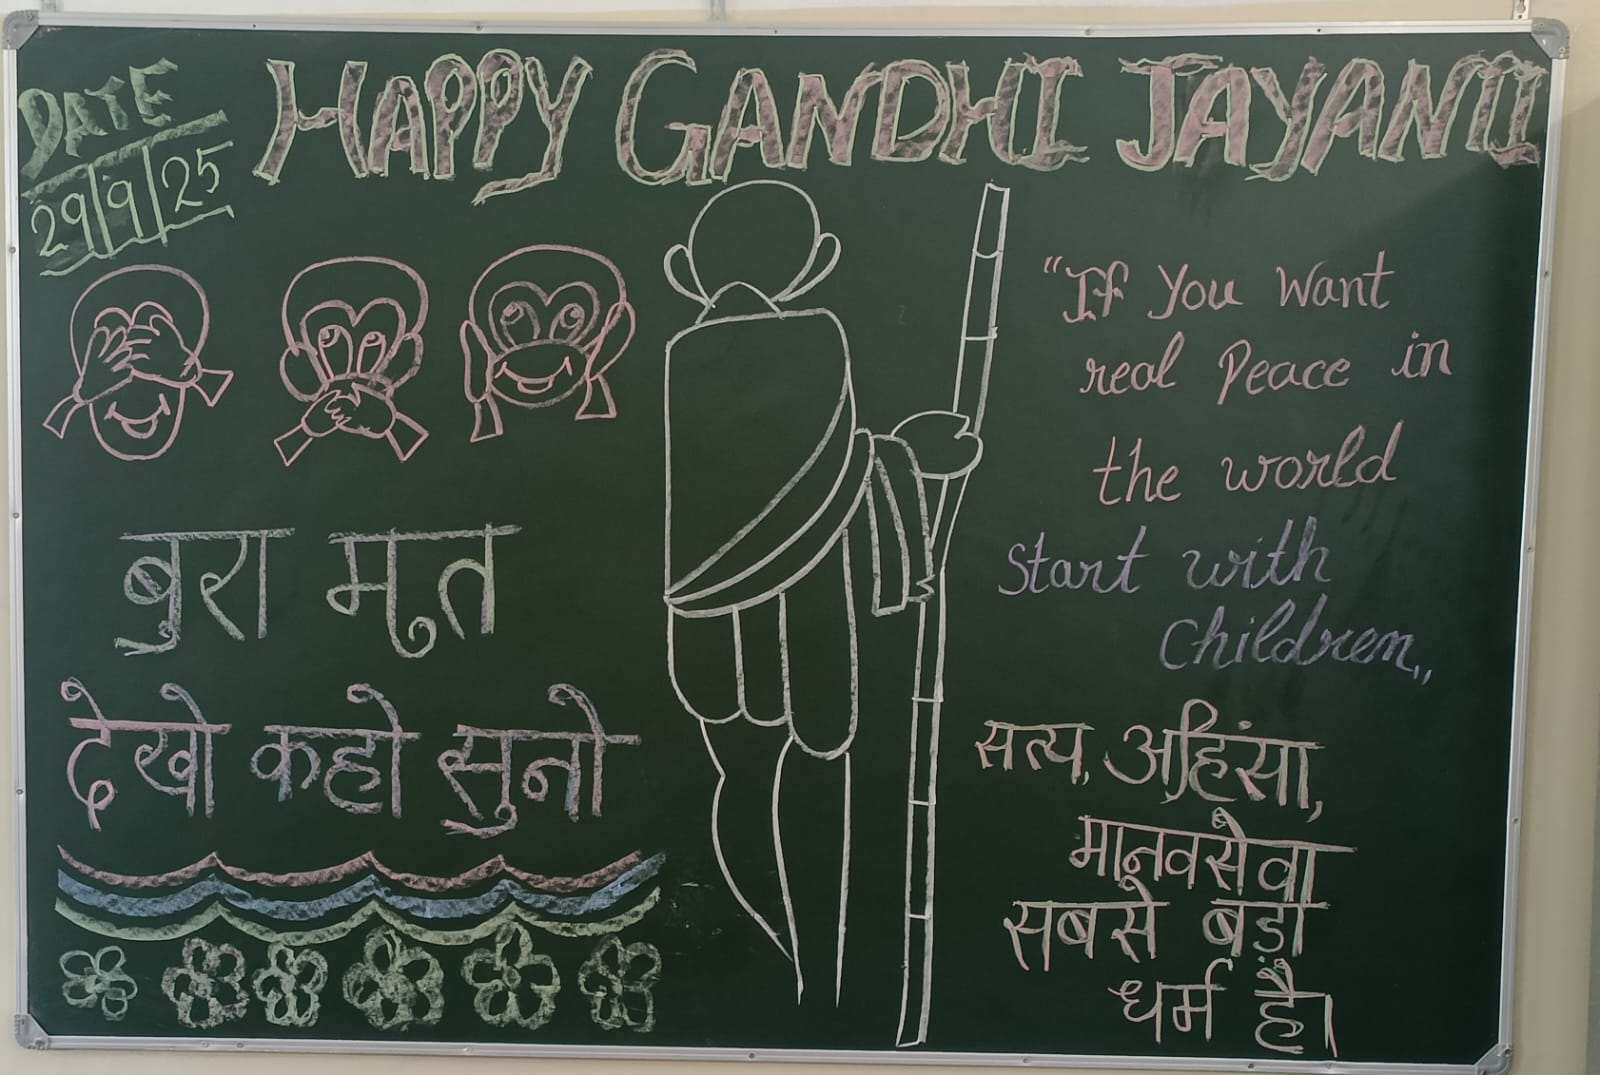 DATE
29/9/25
HAPPY GANDHI JAYANTI
बुरा मत
देखो कहो सुनो
"If You Want
real Peace in
the world
Start with
Children,,
सत्य, अहिंसा,
मानवसेवा
सबसे बड़ा
धर्म है।